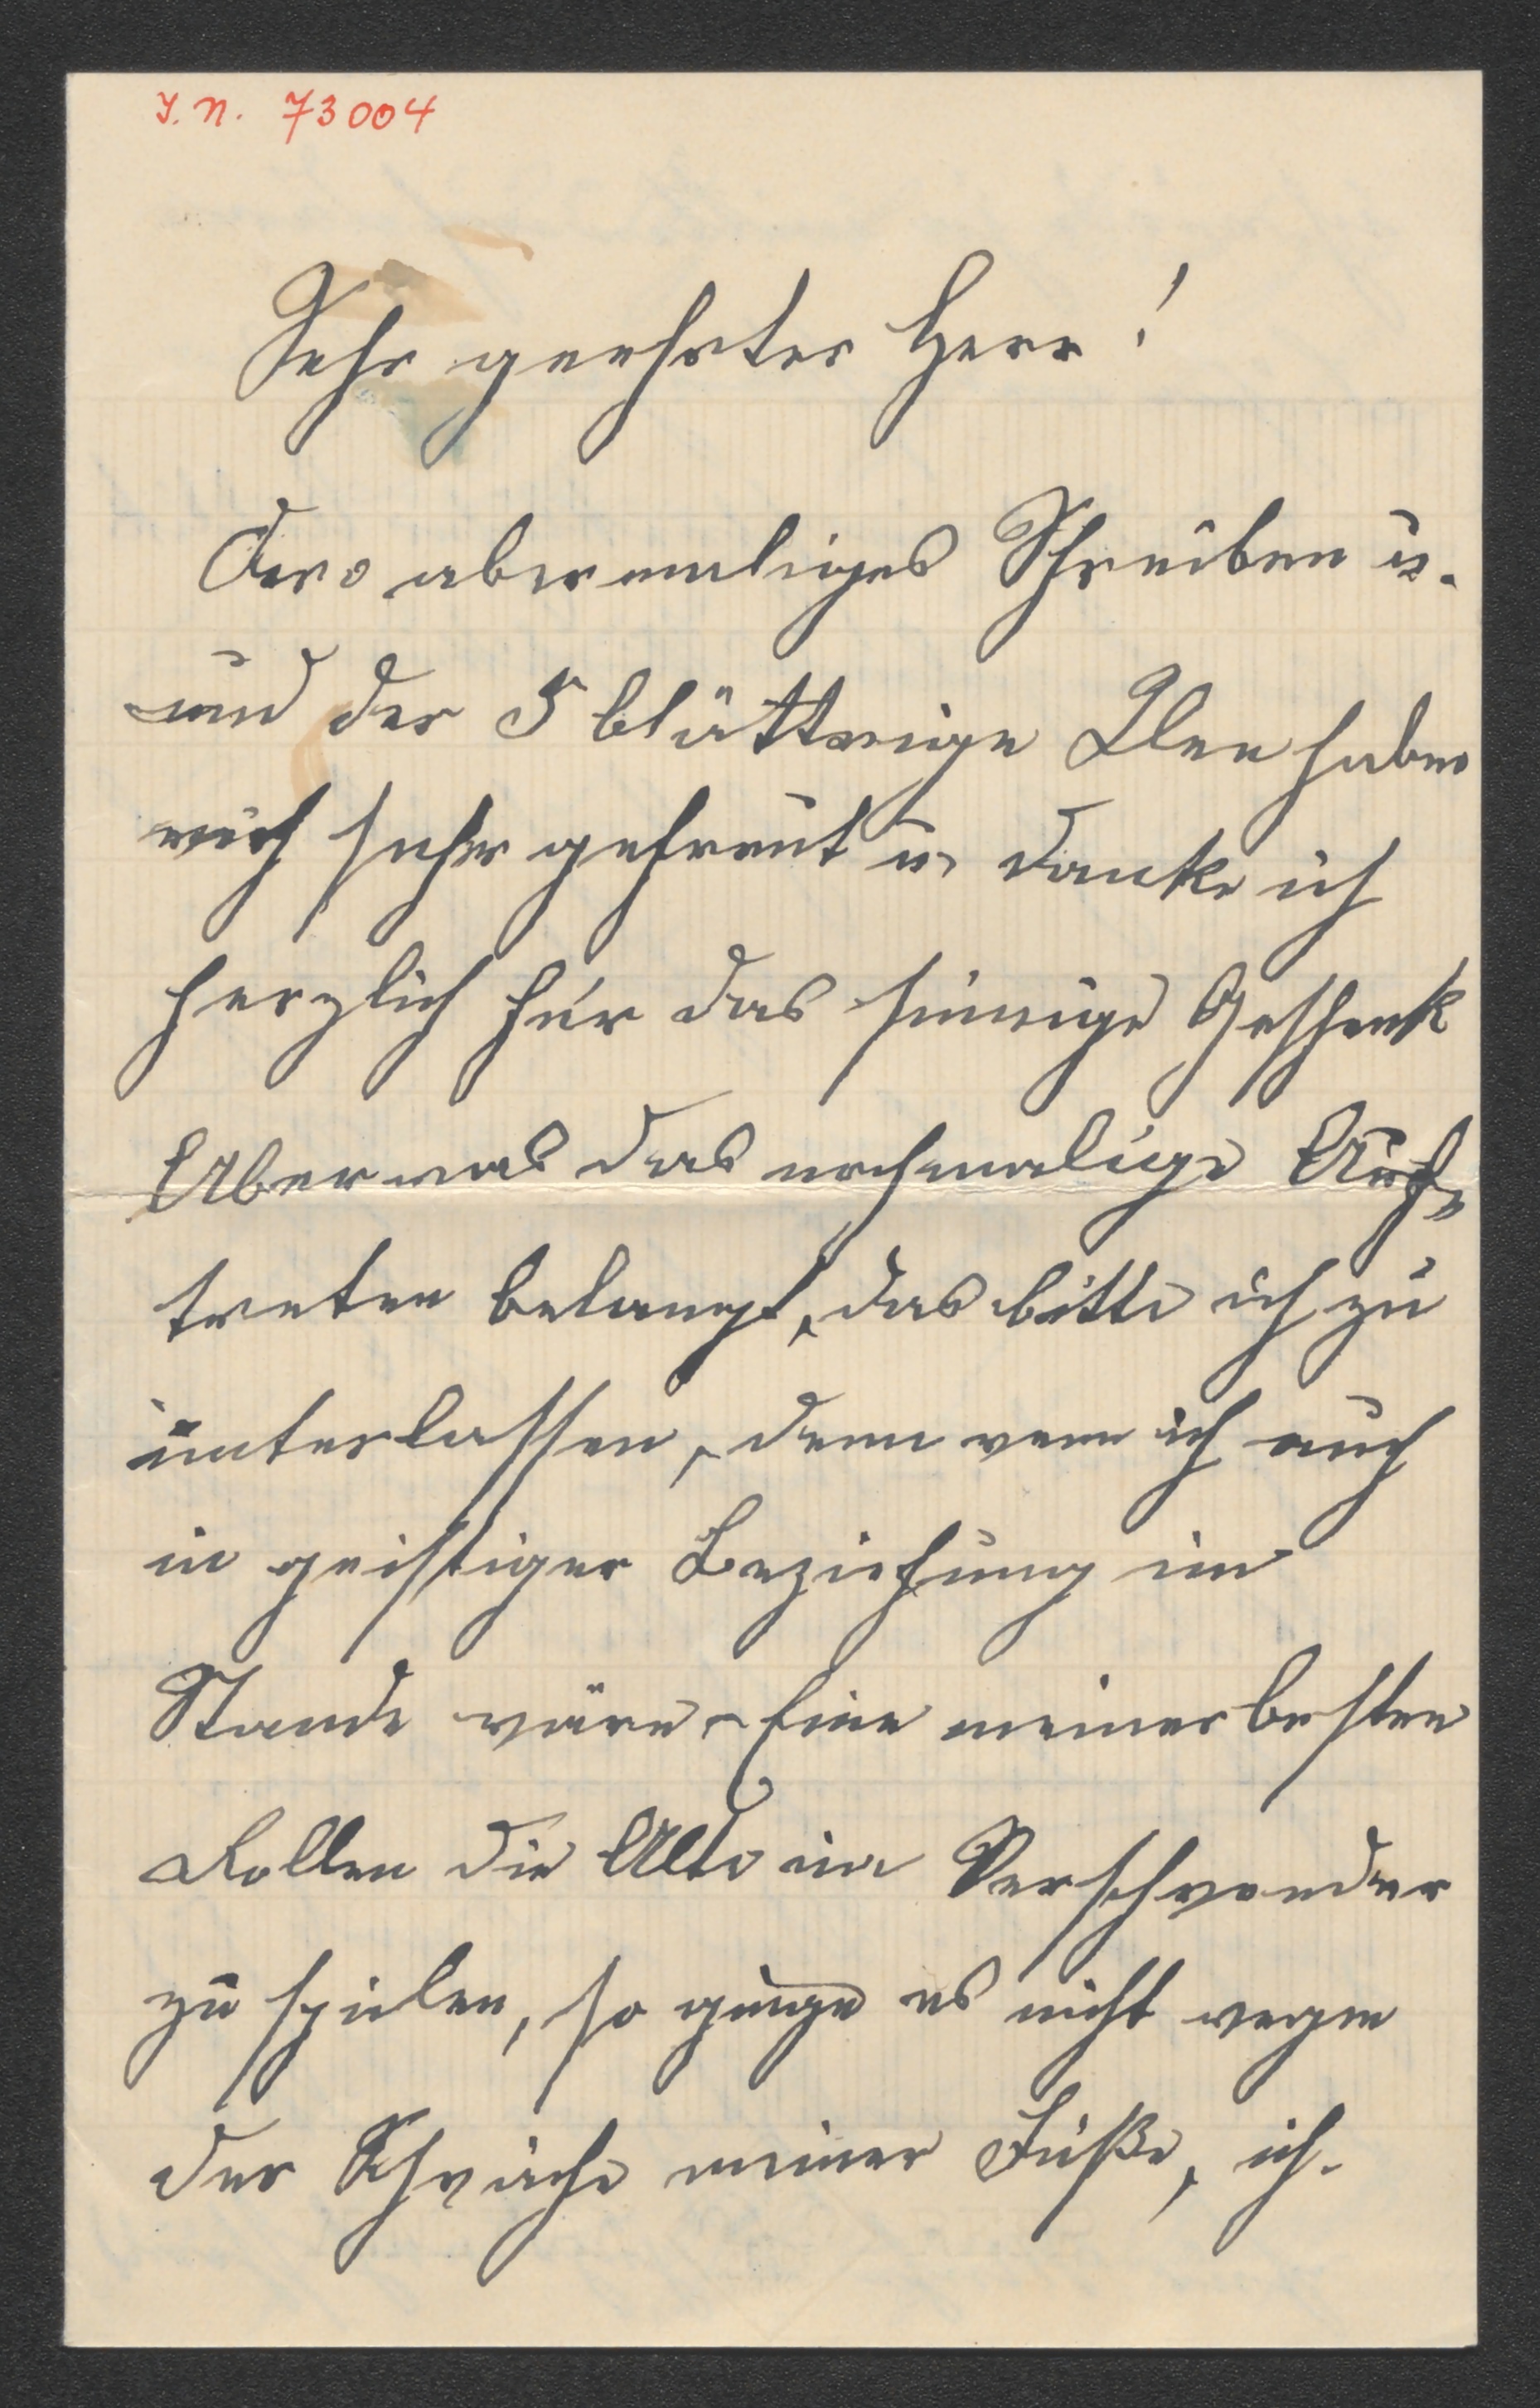 I. N. 73004
Sehr geehrter Herr!
Dero abermaliges Schreiben u.
und der 5 blättrige Klee haben
mich sehr gefreut u. danke ich
herzlich für das sinnige Geschenk
Aber was das nochmalige Auf-
treten belangt, das bitte ich zu
unterlassen, denn wenn ich auch
in geistiger Beziehung im
Stande wäre - Eine meiner besten
Rollen die Alte im Verschwender
zu spielen, so ginge es nicht wegen
der Schwäche meiner Füße, ich.